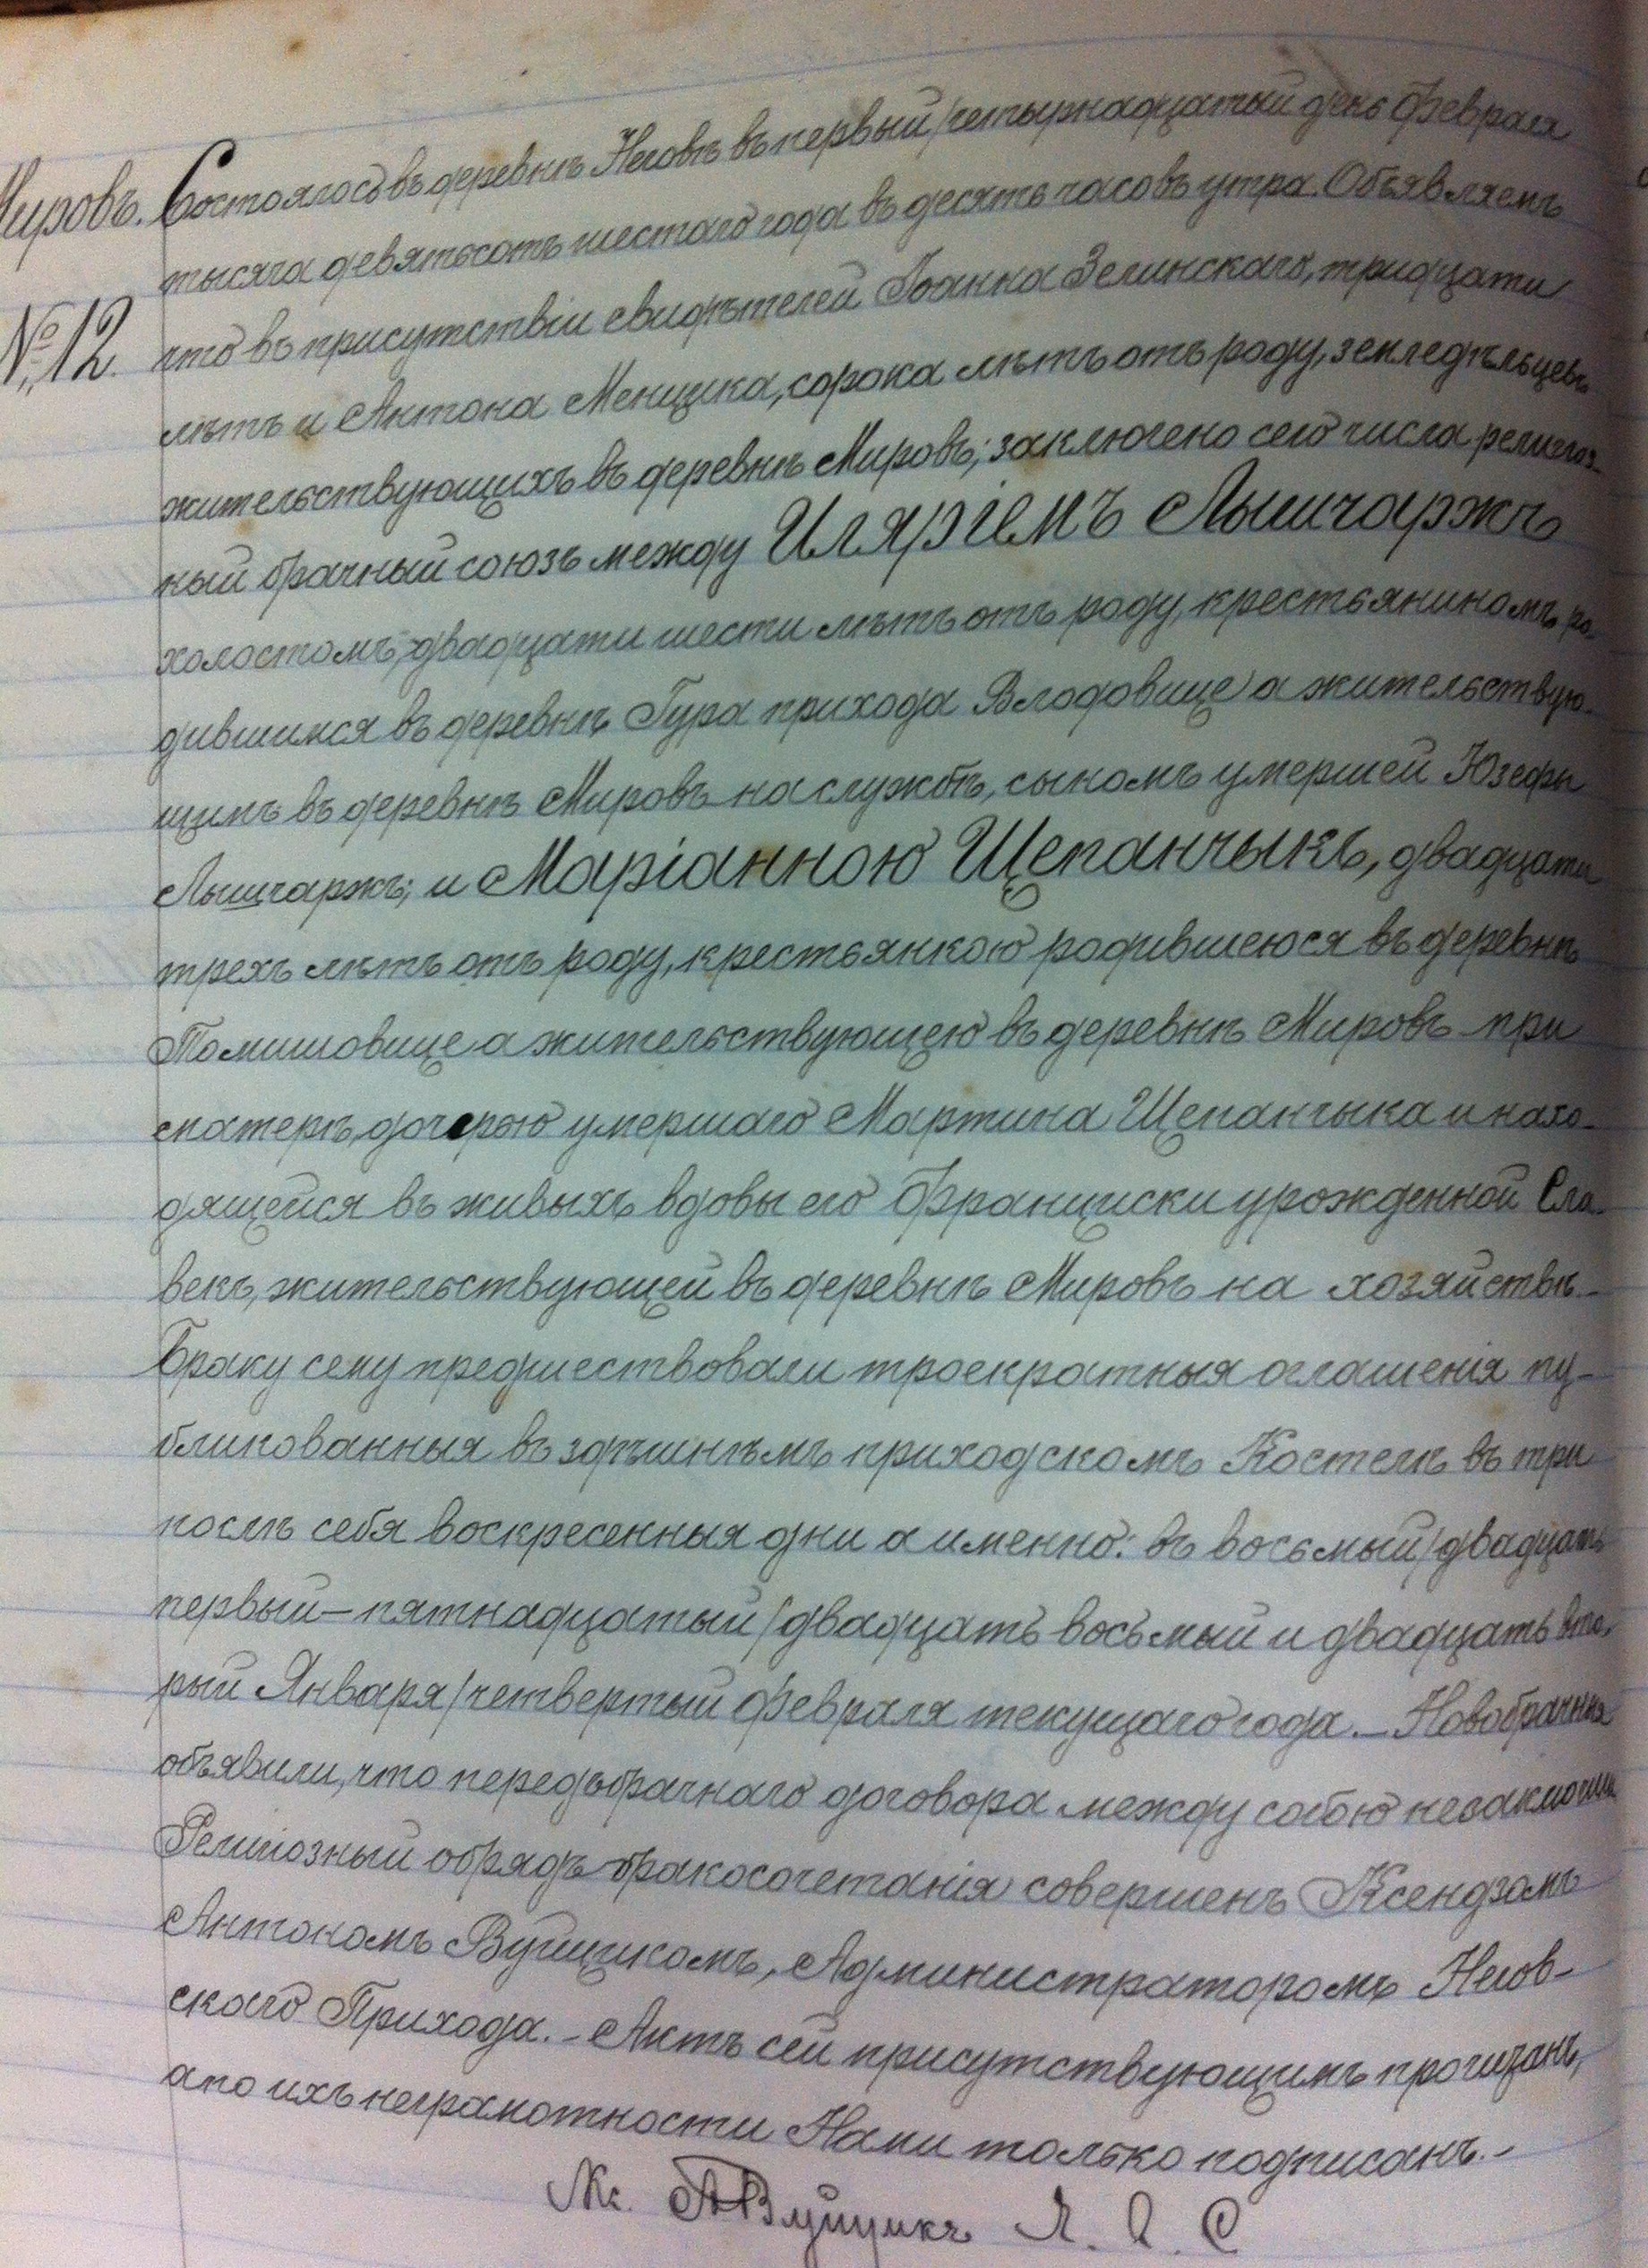 Мировъ.
№ 12.
Состоялось въ деревнѣ Неговѣ въ первый/четырнадцатый день Февраля
тысяча девятьсотъ шестаго года въ десять часовъ утра. Объявляемъ
что въ присутствіи свидѣтелей Іоанна Зелинскаго, тридцати
лѣтъ и Антона Менцика, сорока лѣтъ отъ роду, земледѣльцевъ
жительствующихъ въ деревнѣ Мировъ; заключено сего числа религіоз-
ный брачный союзъ между Иляріемъ Лышчаржъ
холостомъ, двадцати шести лѣтъ отъ роду, крестьяниномъ ро-
дившимся въ деревнѣ Гура прихода Влодовице а жительствую-
щимъ въ деревнѣ Мировъ на службѣ, сыномъ умершей Юзефы
Лышчаржъ; и Маріанною Щепанчыкъ, двадцати
трехъ лѣтъ отъ роду, крестьянкою родившеюся въ деревнѣ
Томишовице а жительствующею въ деревнѣ Мировъ при
матери, дочерью умершаго Мартина Щепанчыка и нахо-
дящейся въ живыхъ вдовы его Франциски урожденной Сла-
векъ, жительствующей въ деревнѣ Мировъ на хозяйствѣ.-
Браку сему предшествовали троекратныя оглашенія пу-
бликованныя въ здѣшнѣмъ приходскомъ Костелѣ въ три
послѣ себя воскресенныя дни а именно: въ восьмый/двадцать
первый - пятнадцатый/двадцать восьмый и двадцать вто-
рый Января/четвертый Февраля текущаго года. - Новобрачные
объявили, что передъбрачнаго договора между собою незаключили
Религіозный обрядъ бракосочетанія совершенъ Ксендзомъ
Антономъ Вуйцикомъ, Администраторомъ Негов-
скаго Прихода. - Актъ сей присутствующимъ прочитанъ,
а по ихъ неграмотности Нами только подписанъ. -
Кс. А Вуйцикъ